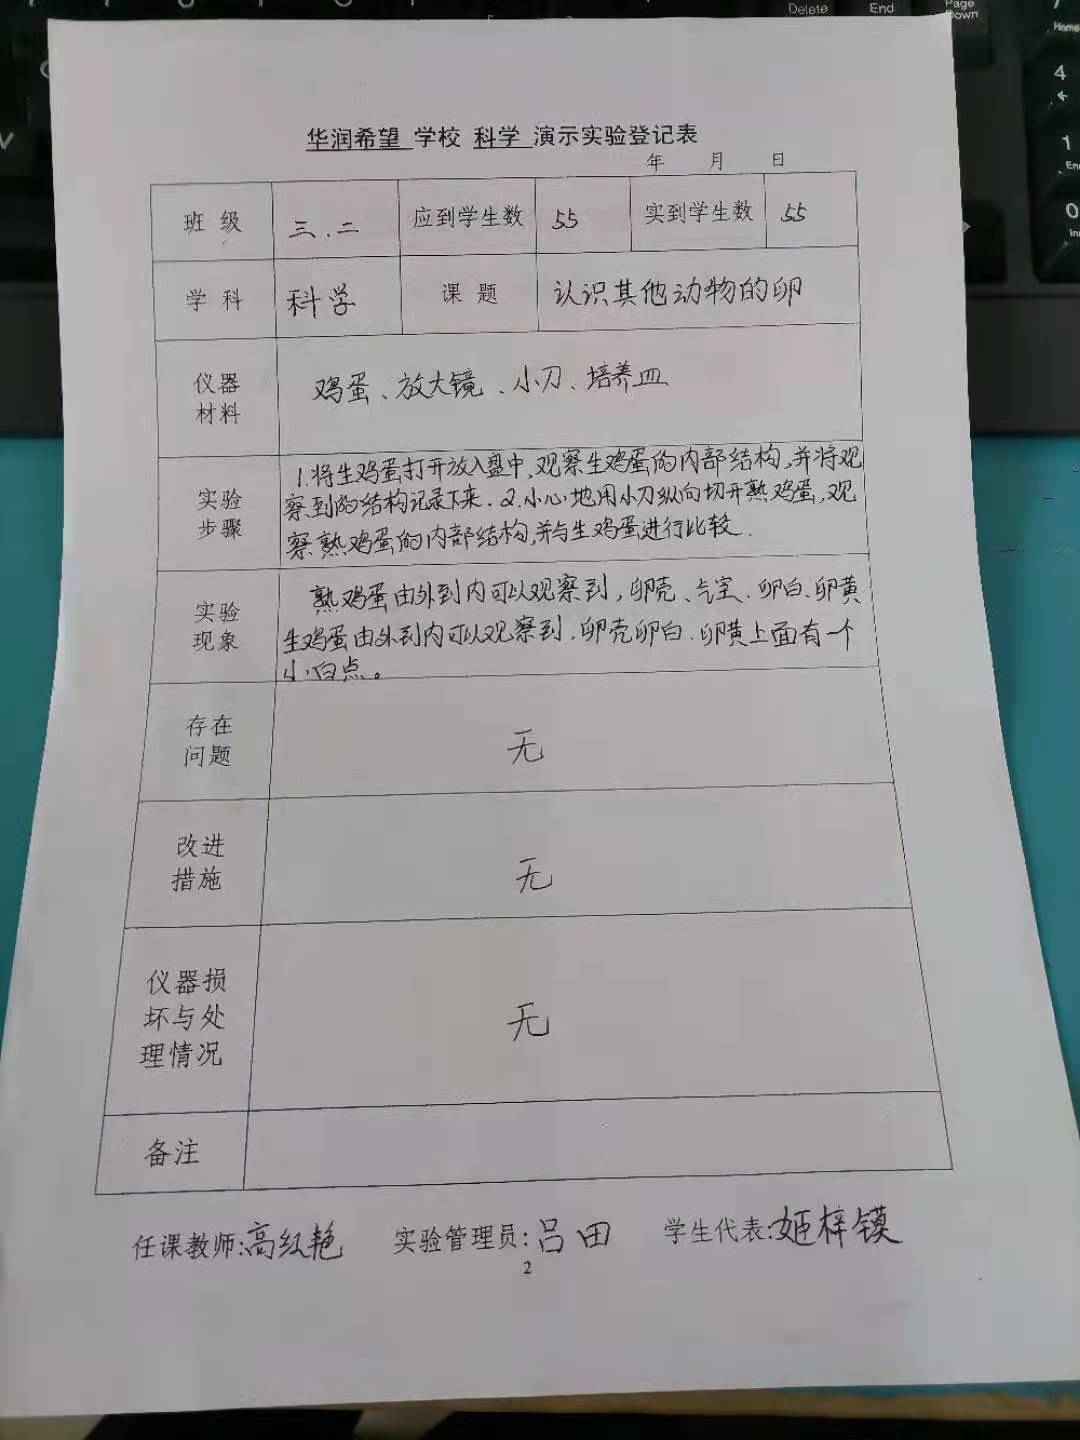 Delete End Page Down
Home
4
1
End
0
华润希望 学校 科学 演示实验登记表
年 月 日
班 级 三.二 应到学生数 55 实到学生数 55
学 科 科学 课 题 认识其他动物的卵
仪器
材料
鸡蛋、放大镜、小刀、培养皿
实验
步骤
1.将生鸡蛋打开放入盘中,观察生鸡蛋的内部结构,并将观
察到的结构记录下来.2.小心地用小刀纵向切开熟鸡蛋,观
察熟鸡蛋的内部结构,并与生鸡蛋进行比较.
实验
现象
熟鸡蛋由外到内可以观察到,卵壳、气室.卵白.卵黄
生鸡蛋由外到内可以观察到.卵壳卵白.卵黄上面有一个
小白点。
存在
问题
无
改进
措施
无
仪器损
坏与处
理情况
无
备注
任课教师:高红艳 实验管理员:吕田 学生代表:姬梓镆
2